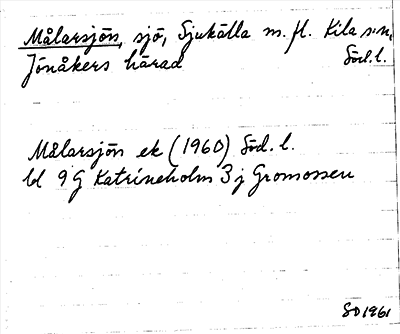 Målarsjön, sjö, Sjukälla m. fl. Kila sn,
Jönåkers härad Söd. l.
Målarsjön ek (1960) Söd. l.
bl 9G Katrineholm 3j Gromossen
SO 1961